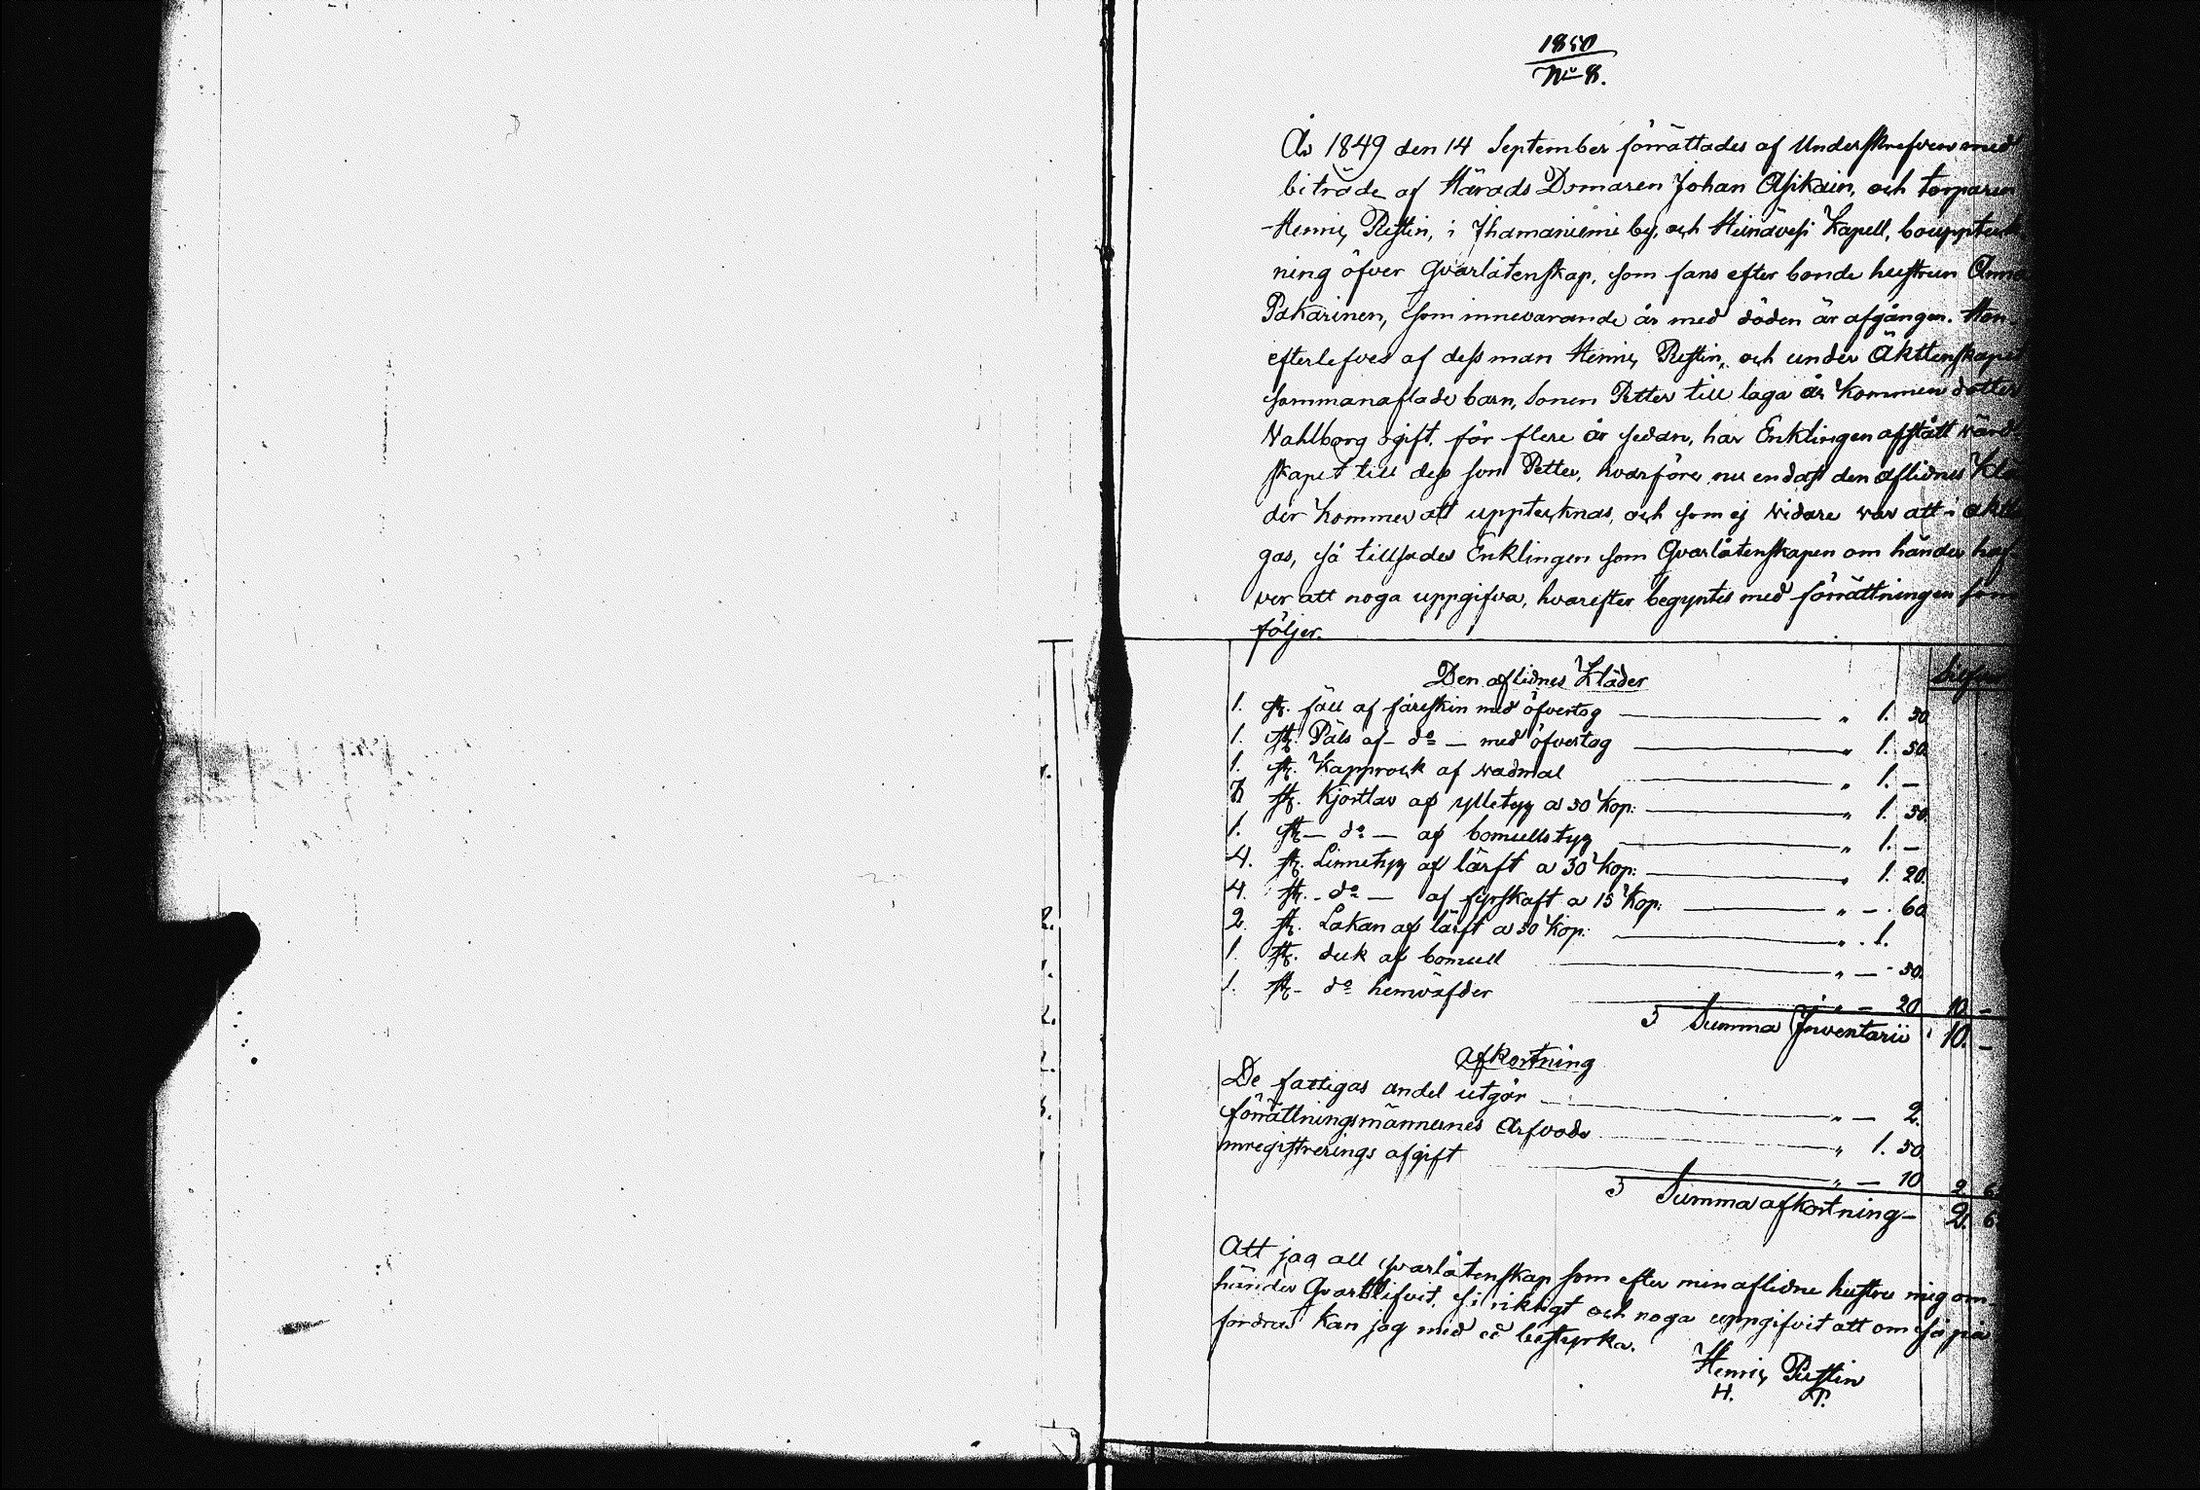 1850
No 8.
År 1849 den 14 September förrättades af Underskrefven med
biträde af Härads Domaren Johan Asikain, och torparen
Henric Pistin, i Ihamaniemi by, och Heinävesi Kapell, bouppteck
ning öfver qvarlåtenskap, som fans efter bonde hustrun Anna
Pakarinen, som innevarande år med döden är afgången. Hon
efterlefves af dess man Henric Pistin, och under Äkttenskapet
sammanaflade barn, sonen Petter till laga år kommen dotter
Wahlborg ogift. för flere år sedan, har Enklingen afstått wärd
skapet till dess son Petter, hvarföre nu endast den aflidnes Klä
der kommer att upptecknas, och som ej vidare var att i aktt
gas, så tillsades Enklingen som Qvarlåtenskapen om händer haf
ver att noga uppgifva, hvarefter begyntes med förrättningen som
följer.
Den aflidnes Kläder
Silfver
1. st. fäll af fårskin med öfvertog " 1. 50
1. st. Päls af - do - med öfvertog " 1. 50.
1. st. Kapprock af vadmal " 1. -
3 st. Kjortlar af ylletyg a 50 Kop: " 1. 50.
1. st - do - af bomullstyg " 1. -
4. st. Linnetyg af lärft a 30 Kop: " 1. 20.
4. st. - do - af fyrskaft a 15 Kop: " - 60
2. st. Lakan af lärft a 50 Kop: " 1.
1. st. duk af bomull " - 50.
1. st - do hemväfder " - 20 10. -
S Summa Inventarii 10. -
Afkortning
De fattigas andel utgör " - 2.
förrättningsmännernes Arfvode " 1. 50
inregistrerings afgift " - 10 2 6
S Summa afkortning - 2. 6
Att jag all qvarlåtenskap som efter min aflidne hustru mig om
händer Qvarblifvit, så riktigt och noga uppgifvit att om så på
fordras kan jag med ed bestyrka.
Henric Pistin
H. P.
1.
2.
1.
2.
2.
5.